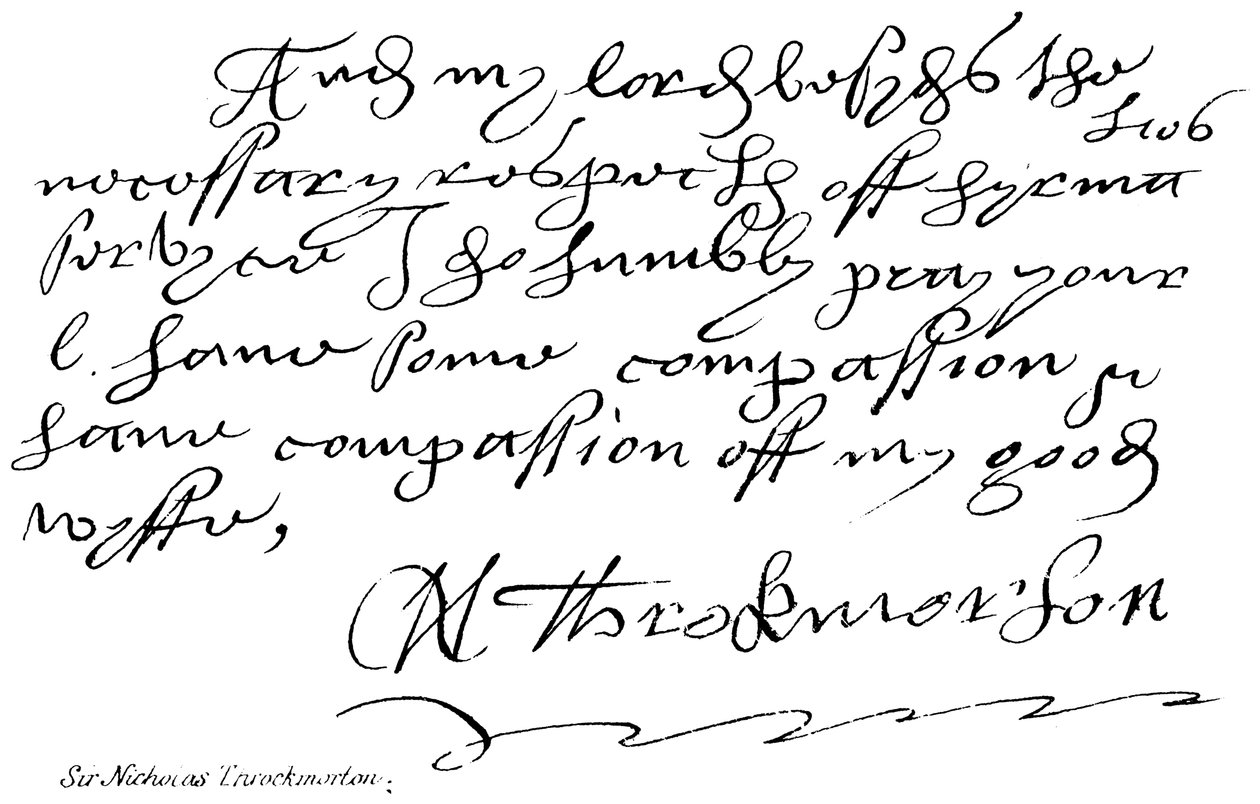 And my lord besyds the
necessary respects off hyr maties
servyce I do humbly pray your
l. have some compassion ye
have compassion off my good
wyffe,
N Throkmorton
Sir Nicholas Throckmorton.